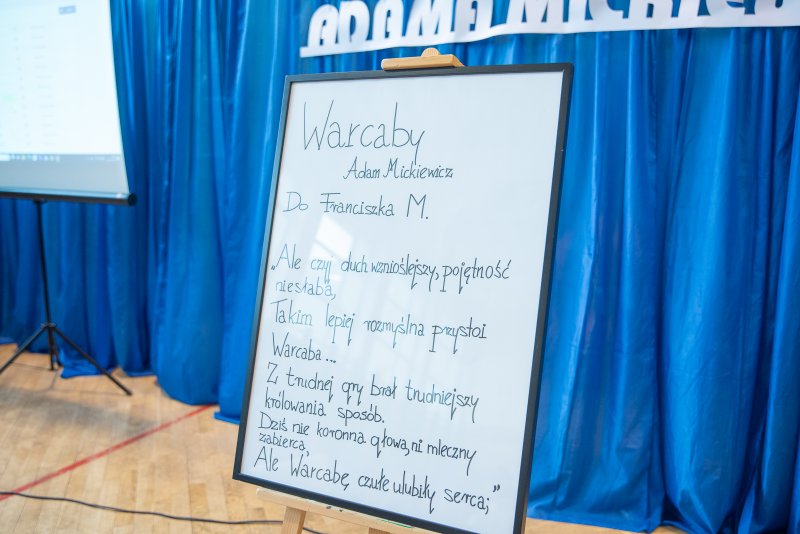 ADAMA MICKIEW
Warcaby
Adam Mickiewicz
Do Franciszka M.
„Ale czyj duch wznioślejszy, pojętność
niesłaba,
Takim lepiej rozmyślna przystoi
Warcaba...
Z trudnej gry brał trudniejszy
królowania sposób.
Dziś nie koronna głowa, ni mleczny
zabierca,
Ale Warcabę, czułe ulubiły serca;”